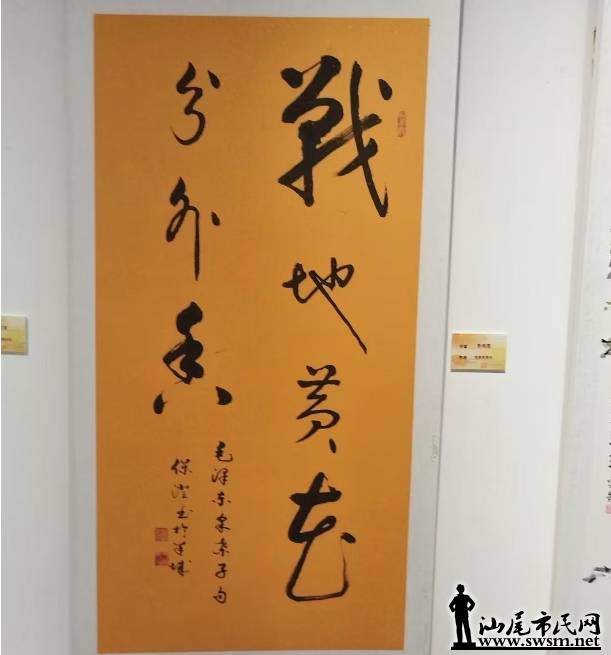 戰地黄花
分外香
毛泽东采桑子句
保澄书于羊城
汕尾市民网
www.swsm.net